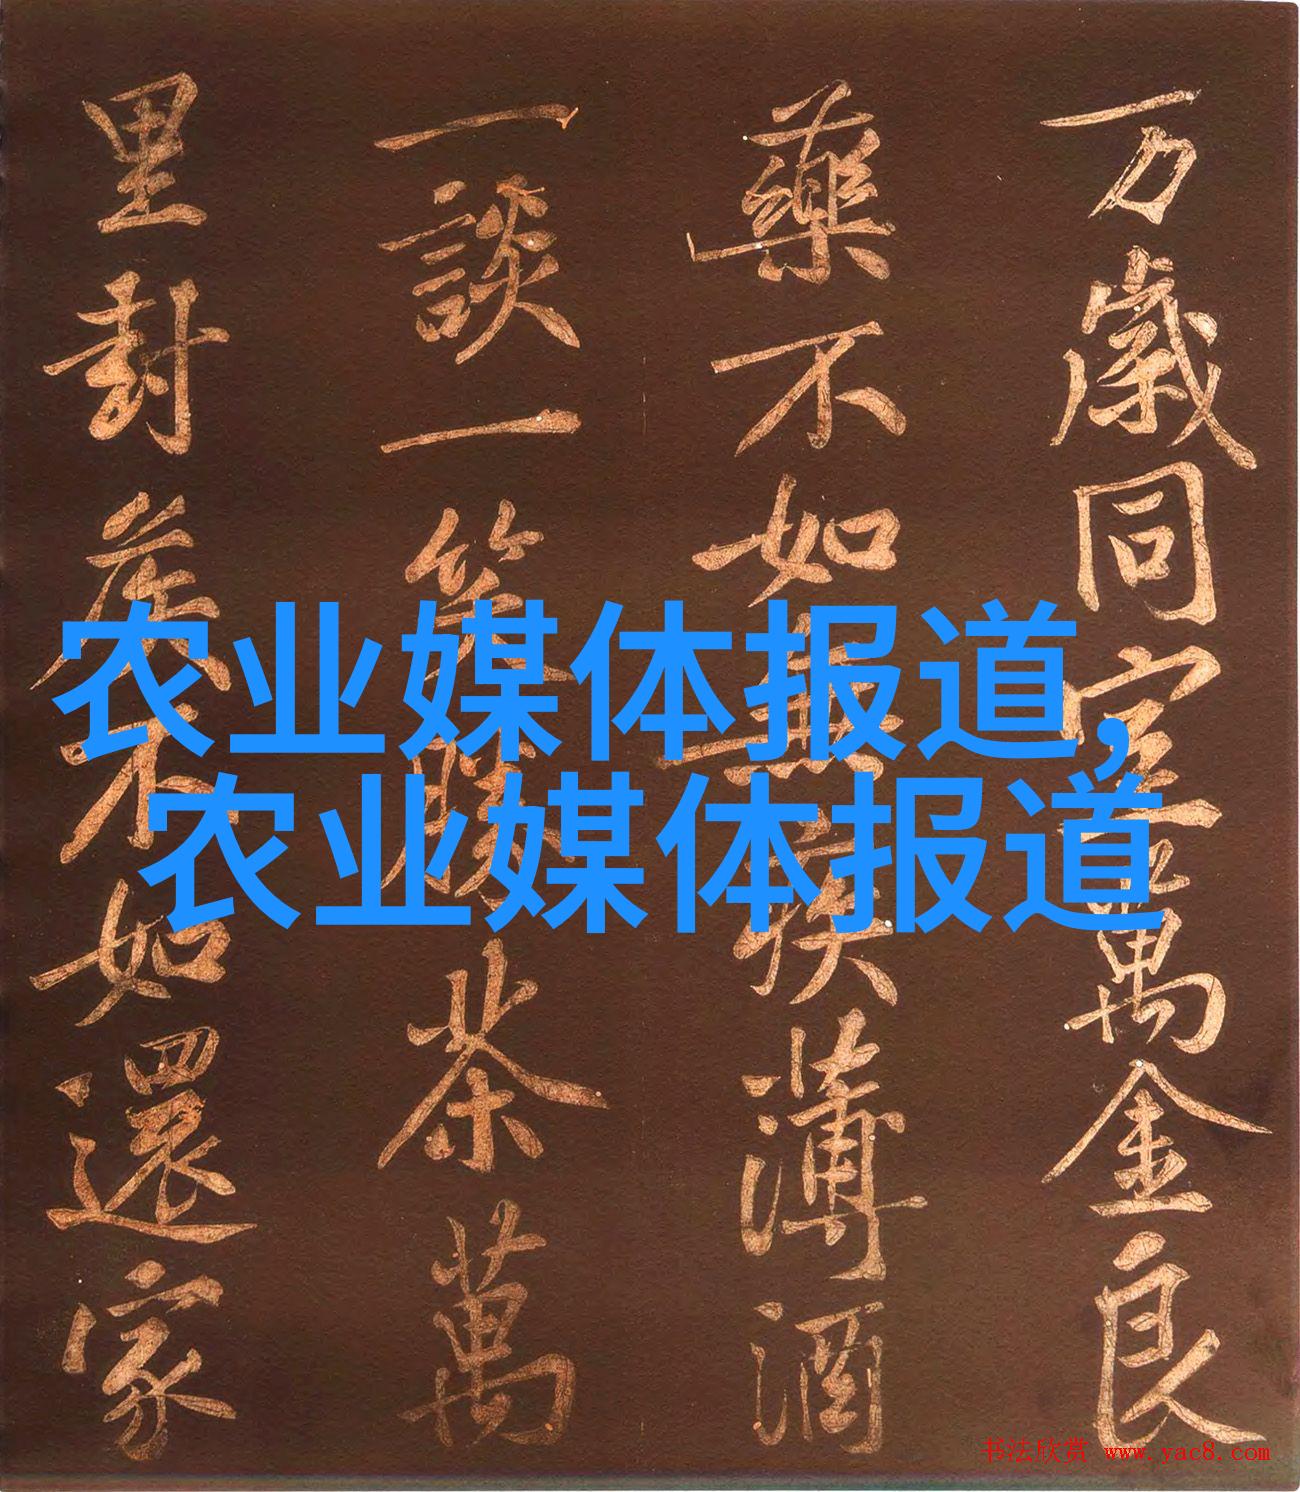 万歲同室萬金良
藥不如無疾薄酒
一談一笑勝茶萬
里封矦不如還家
农业媒体报道,
农业媒体报道
书法欣赏 www.yac8.com